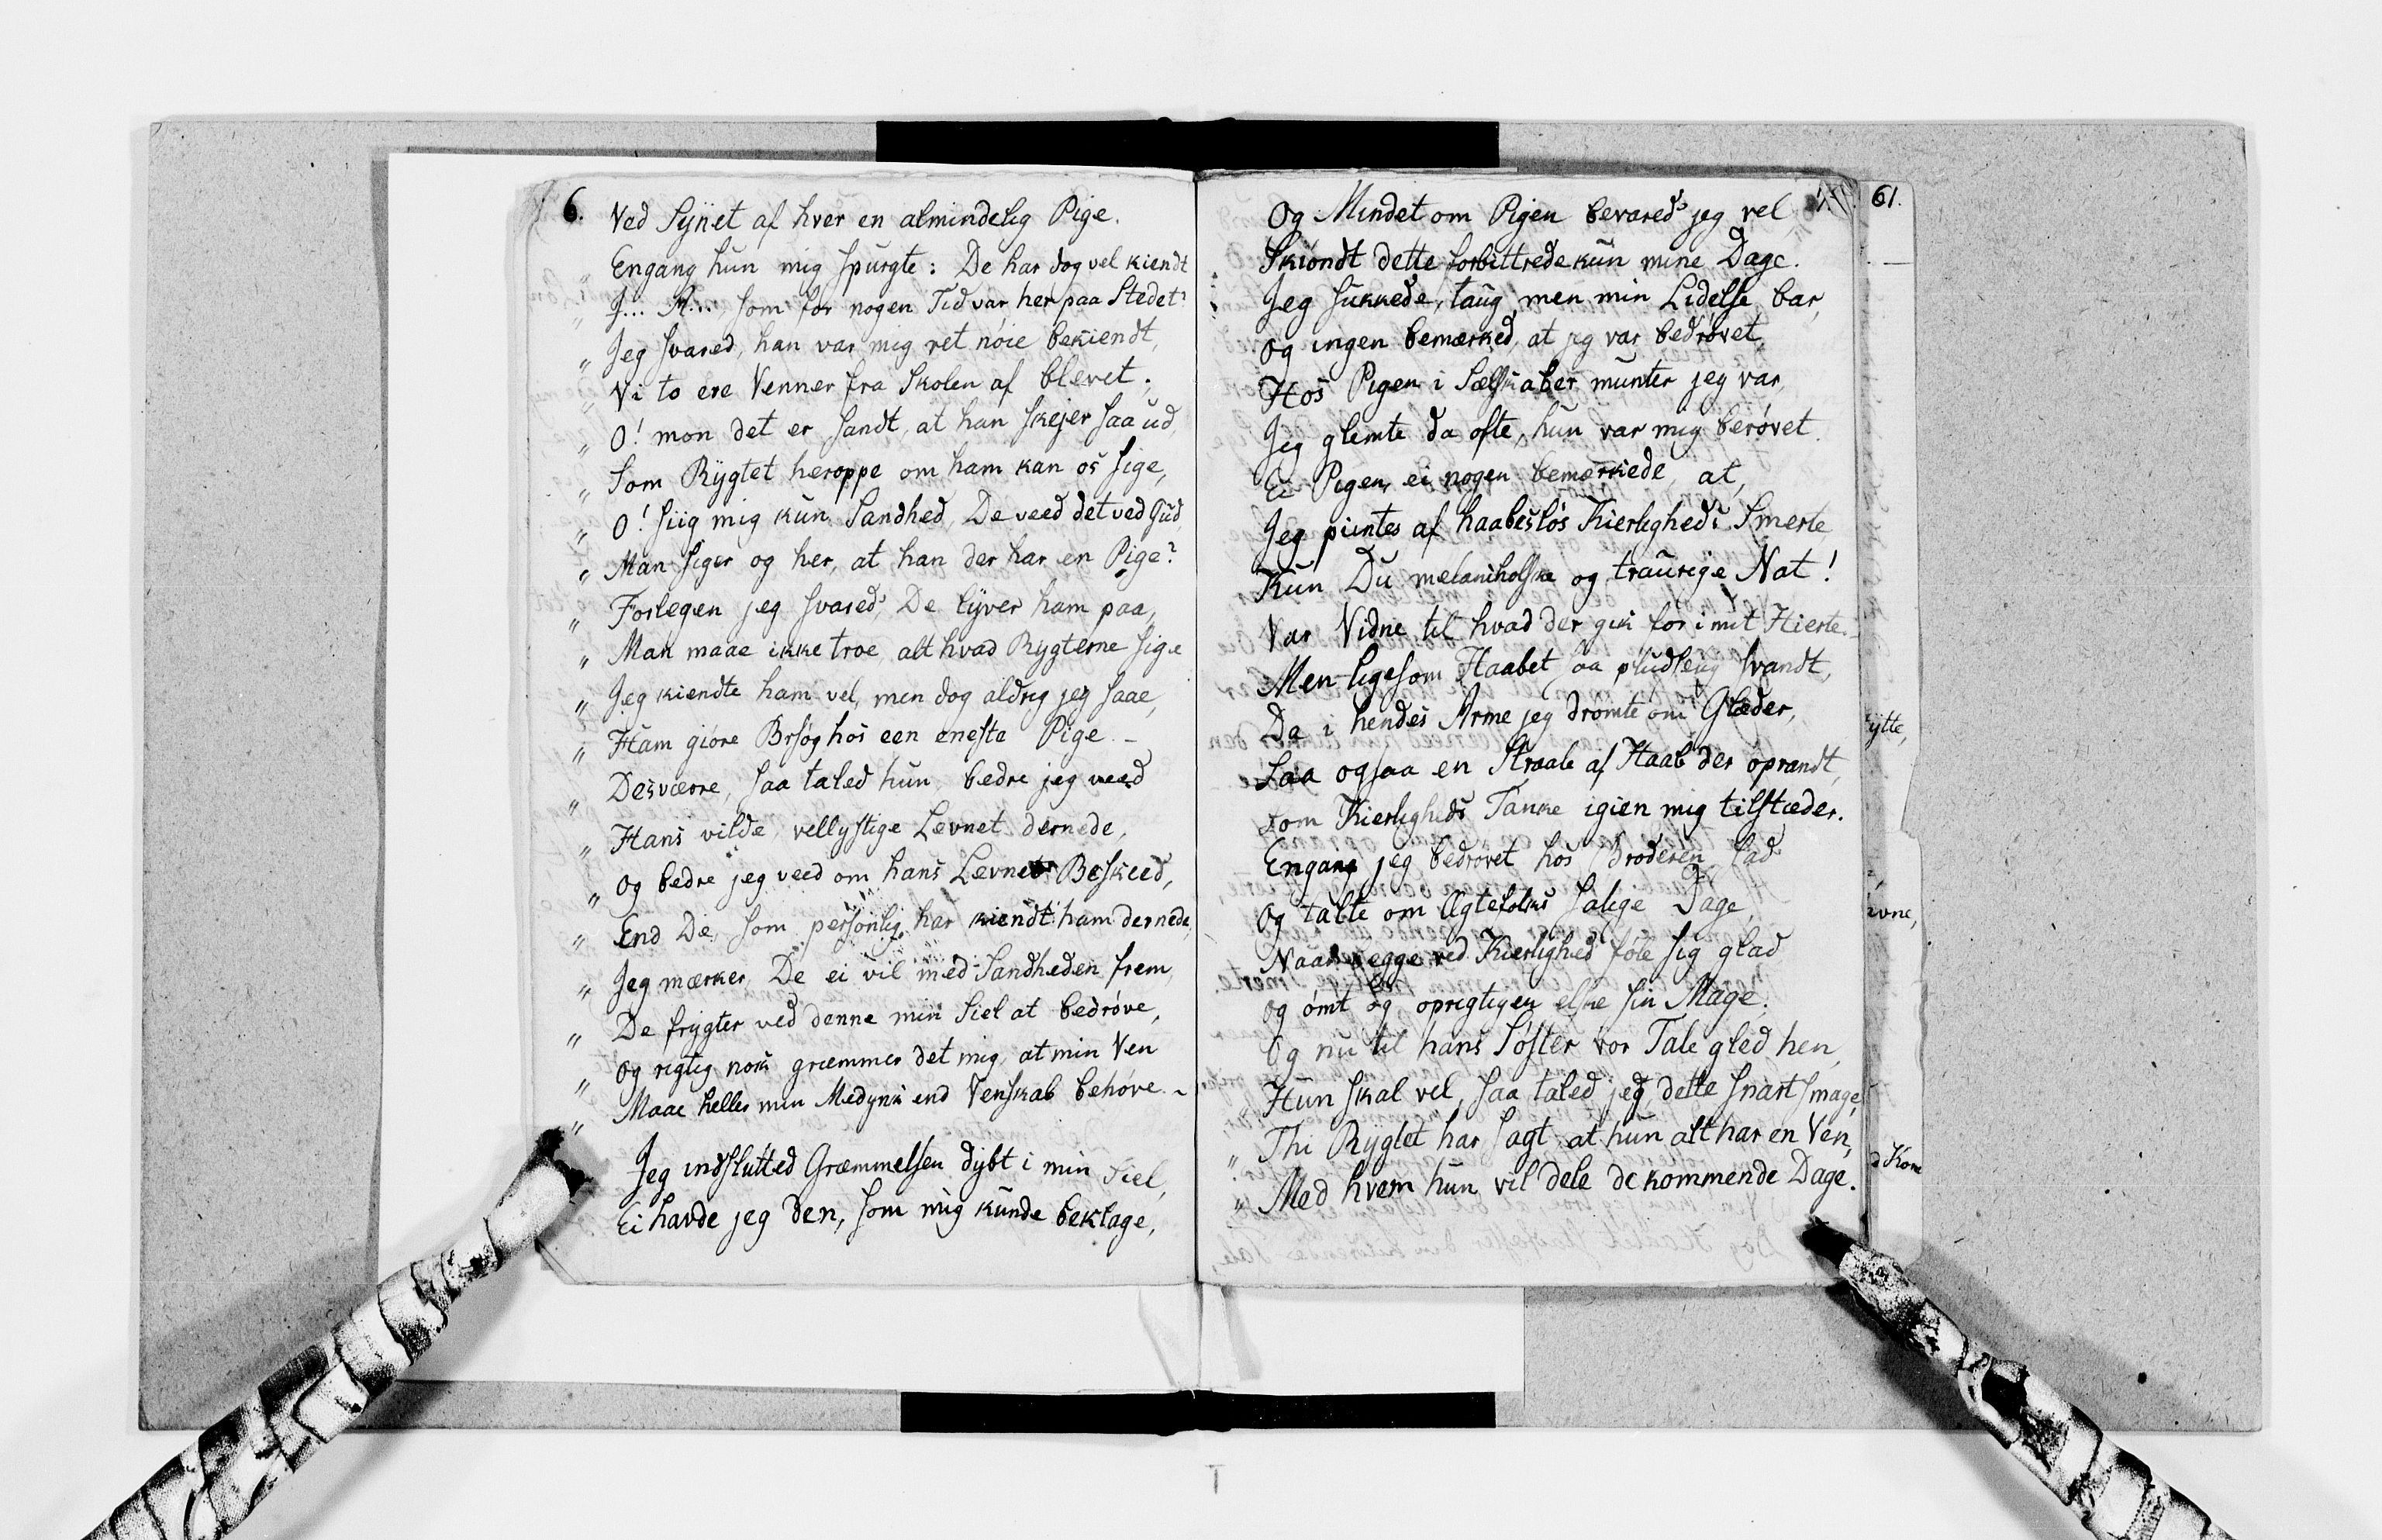 6.
Ved Synet af hver en almindelig Pige.
Engang hun mig spurgte: De har dog vel kiendt
„ J... R... som for nogen Tid var her paa Stedet?
„ Jeg svared, han var mig ret nøie bekiendt,
„ Vi to ere Venner fra Skolen af blevet.
„ O! mon det er sandt, at han skejer saa ud,
„ Som Rygtet heroppe om ham kan os sige,
„ O! siig mig kun Sandhed, De veed det ved Gud,
„ Man siger og her, at han der har en Pige?
„ Forlegen jeg svared, De lyver ham paa,
„ Man maae ikke troe alt hvad Rygterne sige
„ Jeg kiendte ham vel, men dog aldrig jeg saae,
„ Ham giøre Besøg hos een eneste Pige –
„ Desværre, saa taled hun bedre jeg veed
„ Hans vilde, vellystige Levnet dernede,
„ Og bedre jeg veed om hans Levnet Beskeed,
„ End De, som personlig har kiendt ham dernede,
„ Jeg mærker, De ei vil med Sandheden frem,
„ De frygter ved denne min Siel at bedrøve,
„ Og rigtig nok græmmer det mig, at min Ven
„ Maae heller min Medynk end Venskab behøve –
Jeg indslutted Græmmelsen dybt i min Siel,
Ei havde jeg den, som mig kunde beklage,
Og Mindet om Pigen bevared jeg vel
Skiøndt dette forbittrede kun mine Dage.
Jeg sukkede, taug, men min Lidelse bar,
Og ingen bemærked, at jeg var bedrøvet.
Hos Pigen i Selskaber munter jeg var,
Jeg glemte da ofte, hun var mig berøvet.
Ei Pigen, ei nogen bemærkede, at,
Jeg piintes af haabesløs Kierligheds Smerte
Kun Du melankolske og traurige Nat!
Var Vidne til hvad der gik for i mit Hierte.
Men ligesom Haabet saa pludselig svandt,
Da i hendes Arme jeg drømte om Glæder,
Saa ogsaa en Straale af Haab der oprandt,
som Kierligheds Tanke igien mig tilstæder.
Engang jeg bedrøvet hos Broderen sad
Og talte om Ægtefolks salige Dage,
Naar begge ved Kierlighed føle sig glad
og ømt og oprigtigen elske sin Mage.
Og nu til hans Søster vor Tale gled hen,
„ Hun skal vel, saa taled jeg, dette snart smage,
„ Thi Rygtet har sagt, at hun alt har en Ven,
„ Med hvem hun vil dele de kommende Dage.
61.
ytte,
d Kone